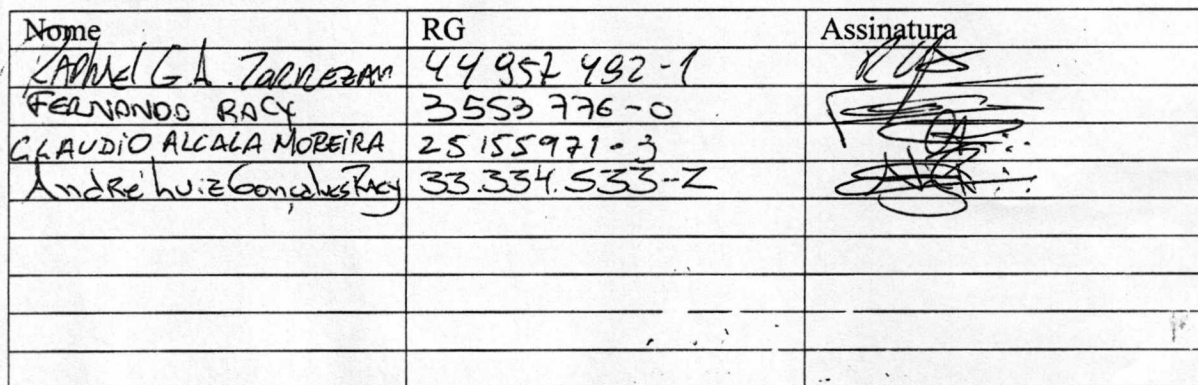 Nome RG Assinatura
Raphael G A. Torrezan 44 957 492-1
FERNANDO RACY 3553 776-0
CLAUDIO ALCALA MOREIRA 25 155 971-3
André Luiz Gonçalves Racy 33.334.533-2